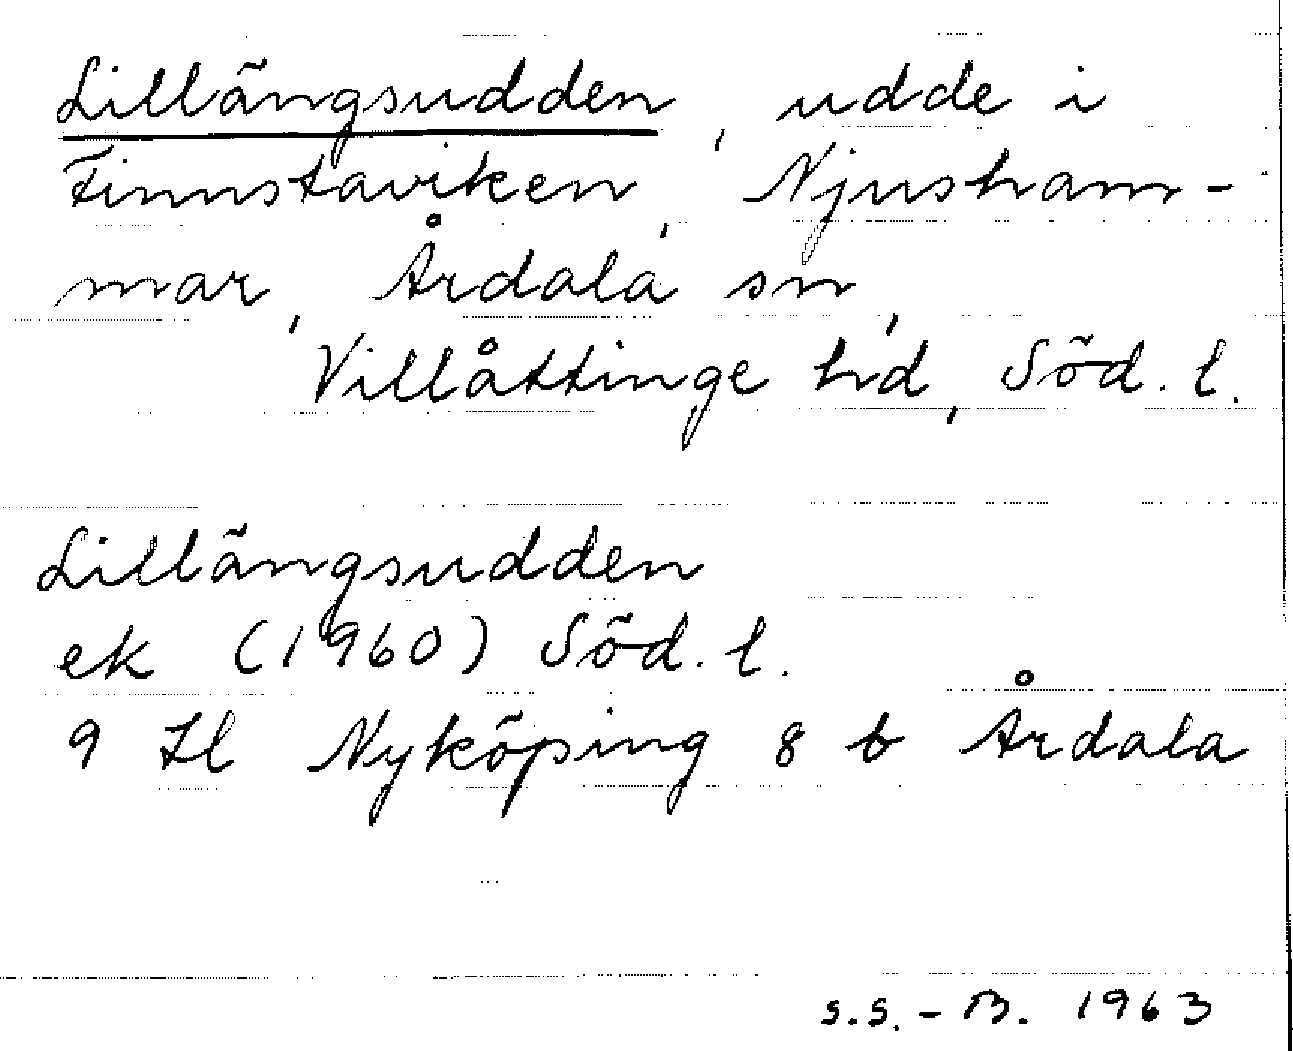 Lillängsudden, udde i
Finnstaviken, Njusham-
mar, Årdala sn,
Villåttinge hd, Söd. l.
Lillängsudden
ek (1960) Söd. l.
9 Hl Nyköping 8 b Årdala
S.S.-B. 1963